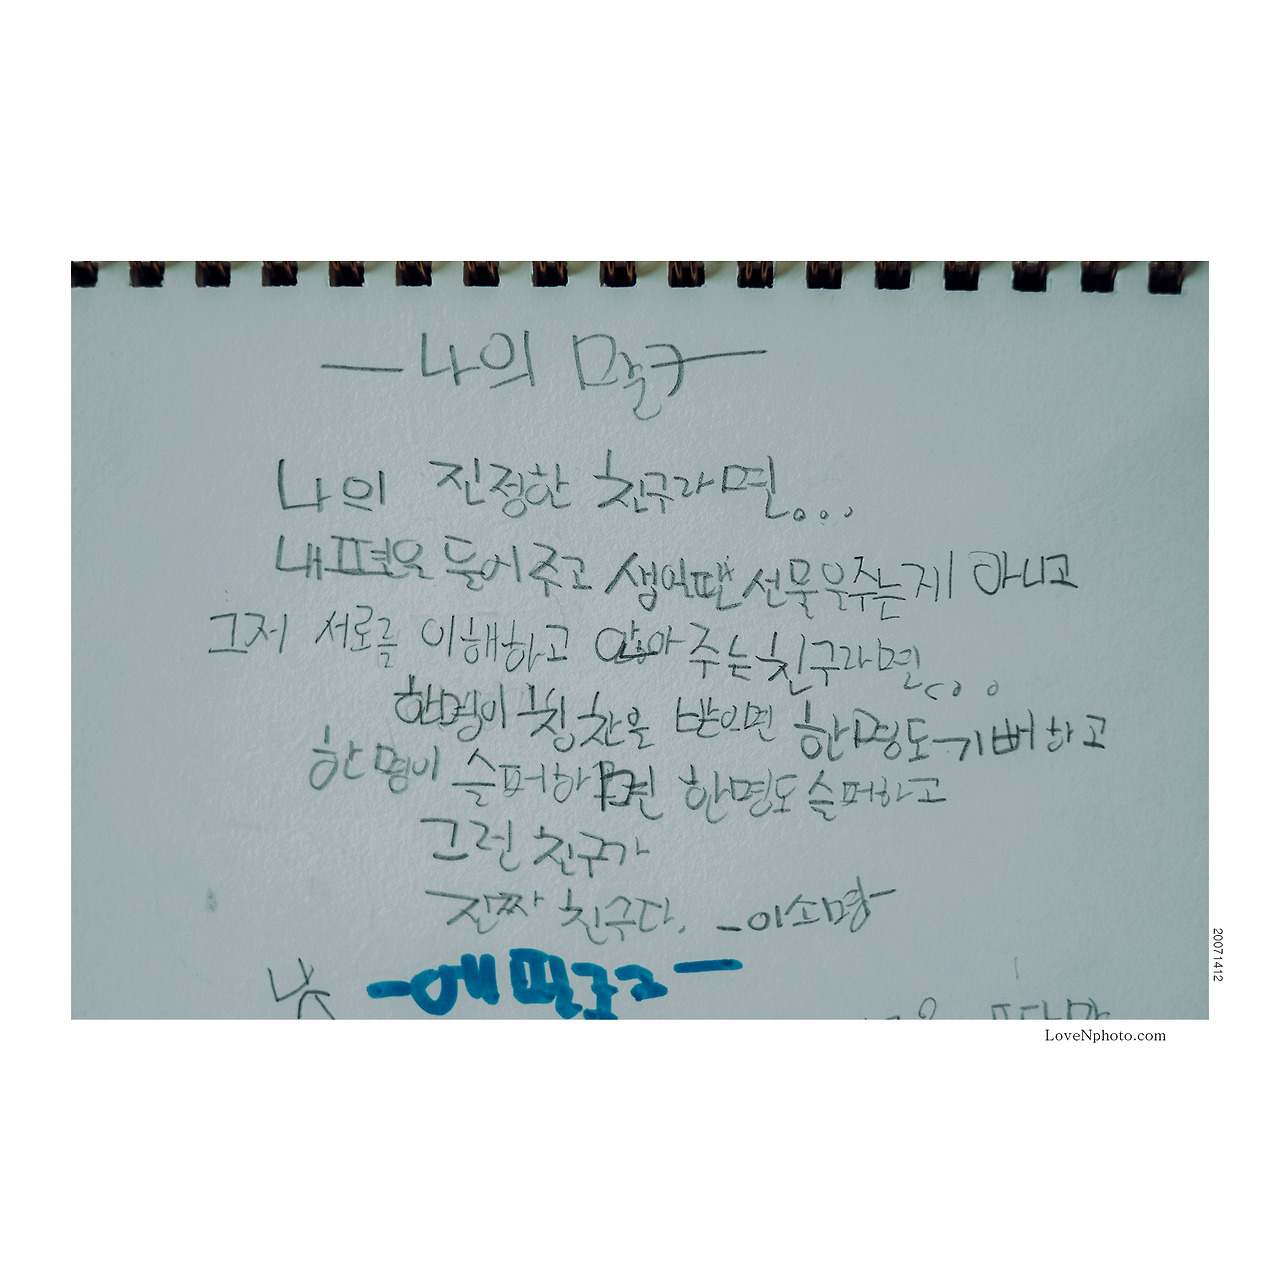 -나의 말구-
나의 진정한 친구라면...
내편을 들어주고 생일땐 선물을주는게 아니고
그저 서로를 이해하고 안아 주는친구라면...
한명이 칭찬을 받으면 한명도 기뻐하고
한명이 슬퍼하면 한명도 슬퍼하고
그런 친구가
진짜 친구다. -이소명-
20071412
LoveNphoto.com